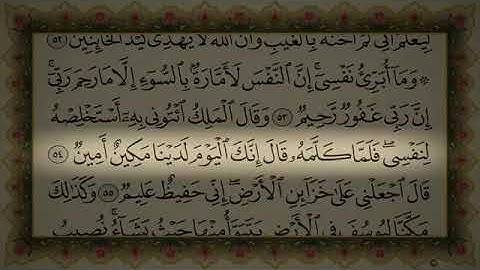 لِيَعْلَمَ أَنِّى لَمْ أَخُنْهُ بِٱلْغَيْبِ وَأَنَّ ٱللَّهَ لَا يَهْدِى كَيْدَ ٱلْخَآئِنِينَ ٥٢
۞ وَمَآ أُبَرِّئُ نَفْسِىٓ ۚ إِنَّ ٱلنَّفْسَ لَأَمَّارَةٌۢ بِٱلسُّوٓءِ إِلَّا مَا رَحِمَ رَبِّىٓ ۚ
إِنَّ رَبِّى غَفُورٌ رَّحِيمٌ ٥٣ وَقَالَ ٱلْمَلِكُ ٱئْتُونِى بِهِۦٓ أَسْتَخْلِصْهُ
لِنَفْسِى ۖ فَلَمَّا كَلَّمَهُۥ قَالَ إِنَّكَ ٱلْيَوْمَ لَدَيْنَا مَكِينٌ أَمِينٌ ٥٤
قَالَ ٱجْعَلْنِى عَلَىٰ خَزَآئِنِ ٱلْأَرْضِ ۖ إِنِّى حَفِيظٌ عَلِيمٌ ٥٥ وَكَذَٰلِكَ
مَكَّنَّا لِيُوسُفَ فِى ٱلْأَرْضِ يَتَبَوَّأُ مِنْهَا حَيْثُ يَشَآءُ ۚ نُصِيبُ